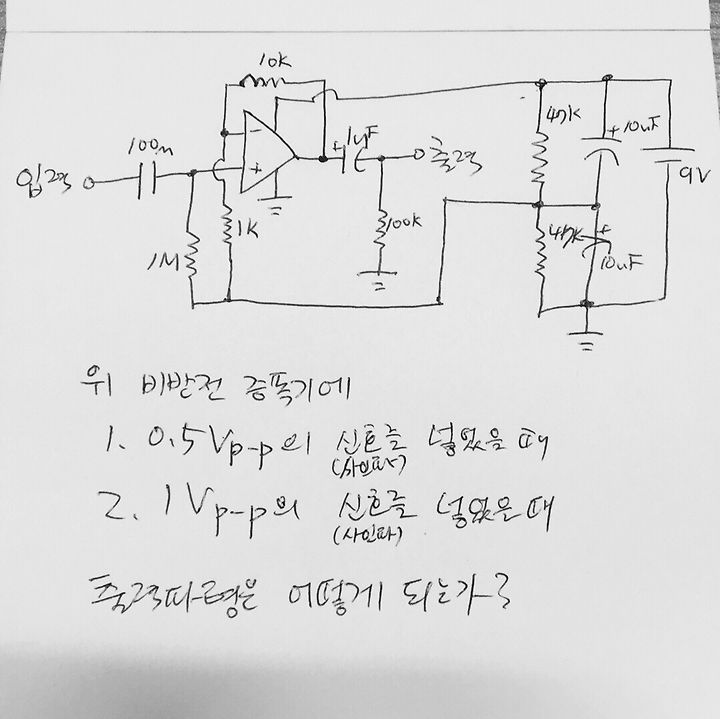 10k
100n
1uF
입력
출력
1M
1K
100k
47k
10uF
9V
47k
10uF
위 비반전 증폭기에
1. 0.5Vp-p의 신호를 넣었을 때
(사인파)
2. 1Vp-p의 신호를 넣었을 때
(사인파)
출력파형은 어떻게 되는가?